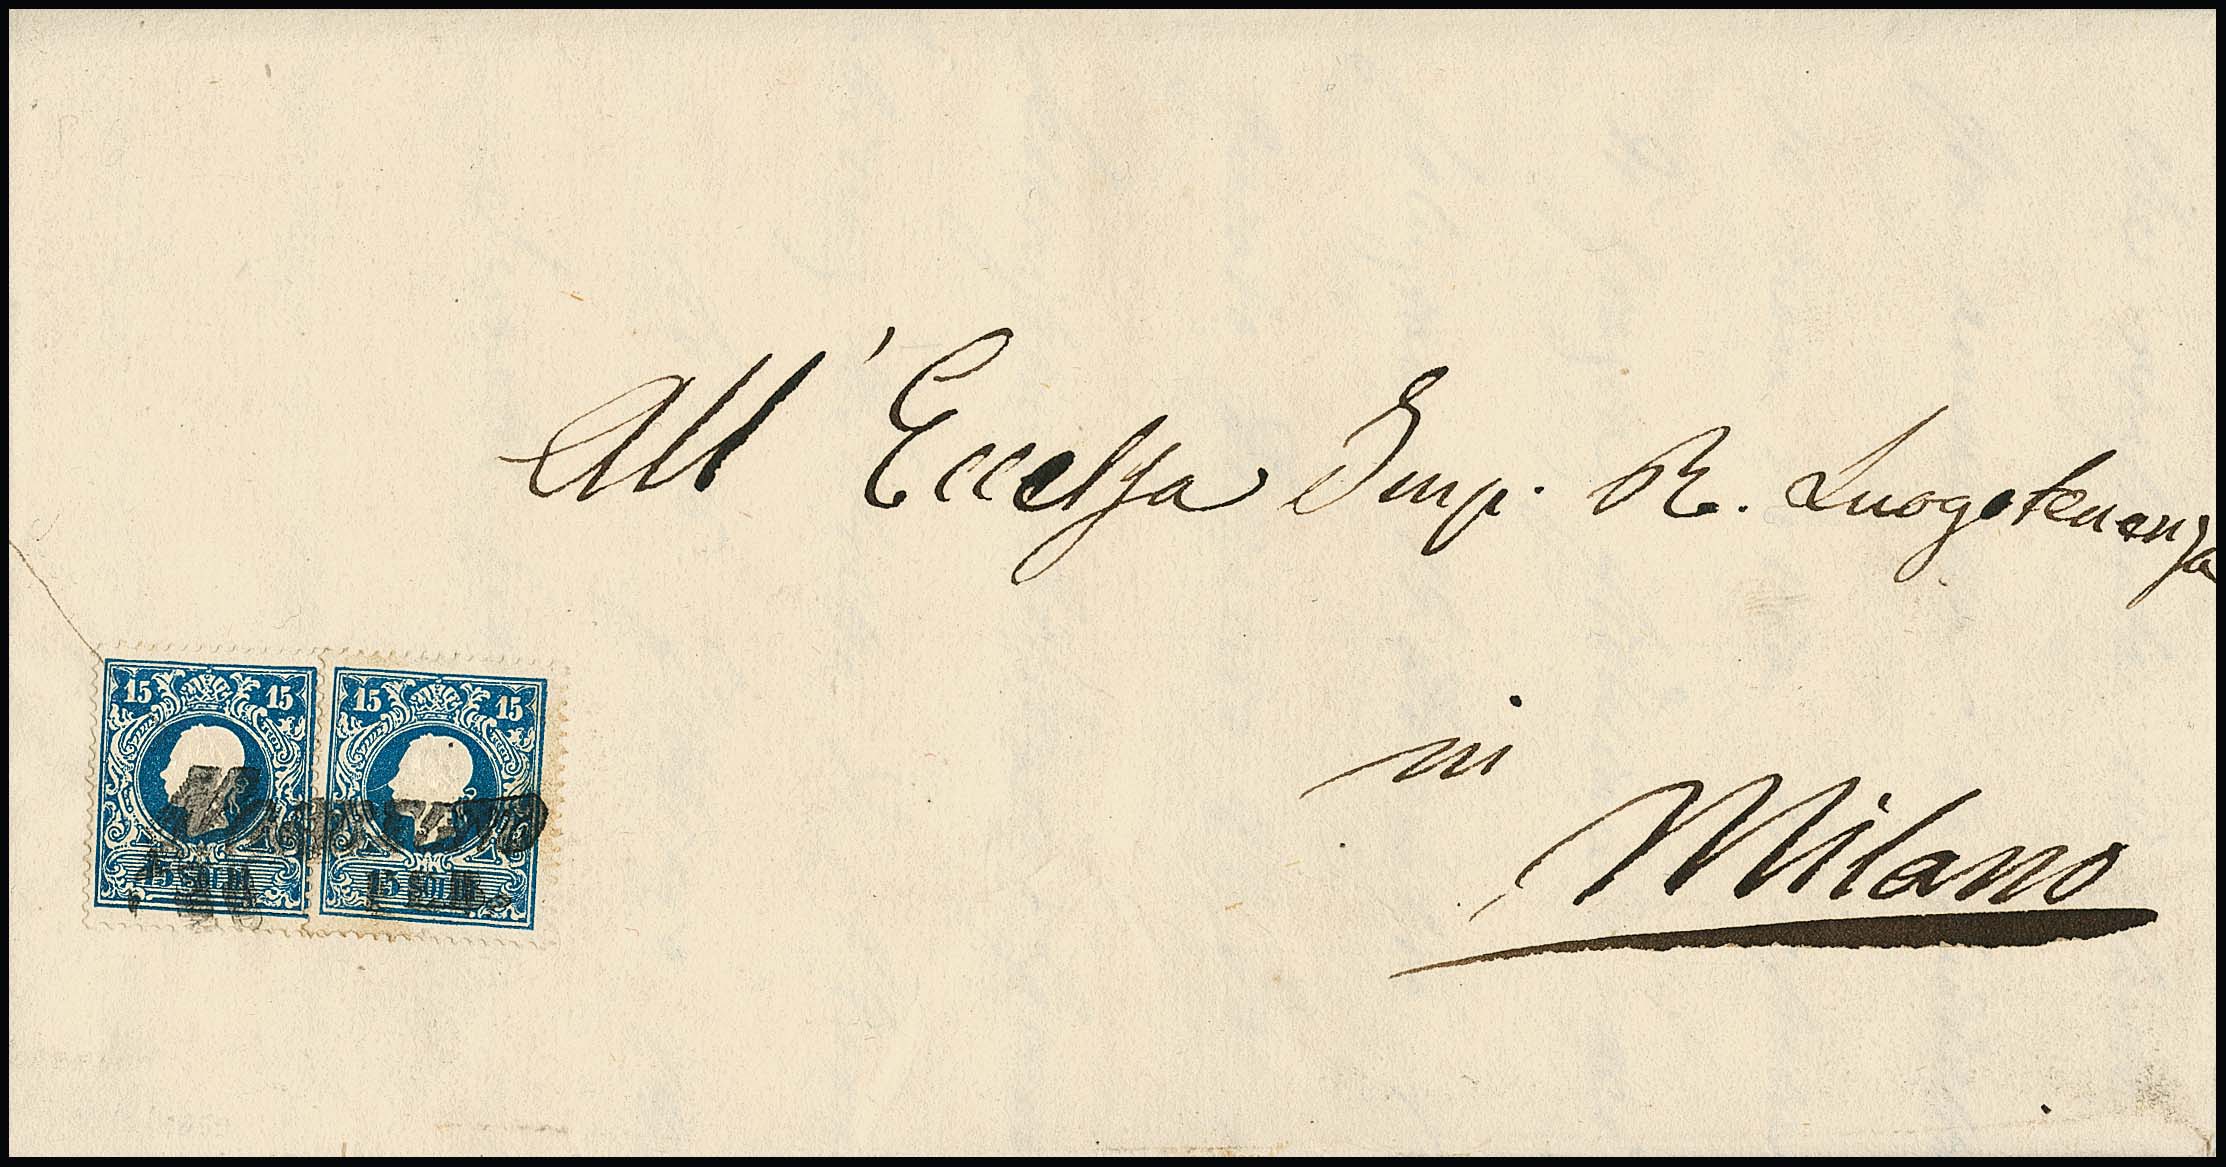 All'Eccelsa Imp. R. Luogotenenza
in
Milano
15 15
15 SOLDI
15 15
15 SOLDI